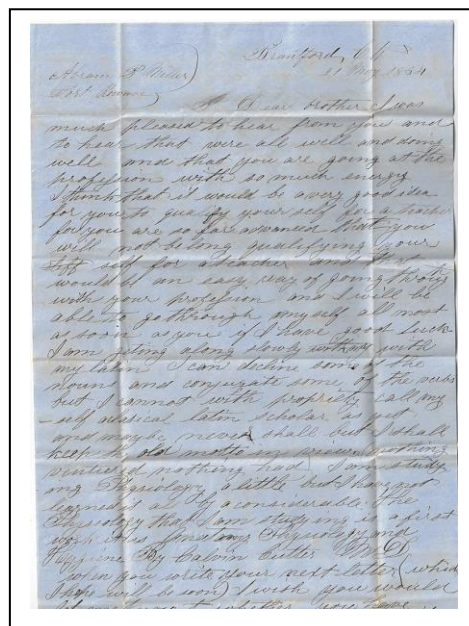 Brantford, C W
11 May 1854
Abram P
Dear brother I was
much pleased to hear from you and
to hear that were all well and doing
well and that you are going at the
profession with so much energy
I think that it would be a very good idea
for you to qualify your self for a teacher
for you are so far advanced that you
will not be long qualifying your
self for a teacher and that
would be an easy way of going through
with your profession and I will be
able to go through myself all most
as soon as you if I have good luck
I am geting along slowly with
my latin I can decline some of the
nouns and conjugate some of the verbs
but I cannot with propriety call my
-self latin scholar as yet
and maybe never shall but I shall
keep the old motto in view nothing
ventured nothing had I am study
ing Physiology a little but I have not
learned as by a considerable The
Physiology that I am studying is a first
Physiology and
Hygiene By Calvin Cutler M.D.
when you write your next letter (which
I hope will be soon) I wish you would
whether you have